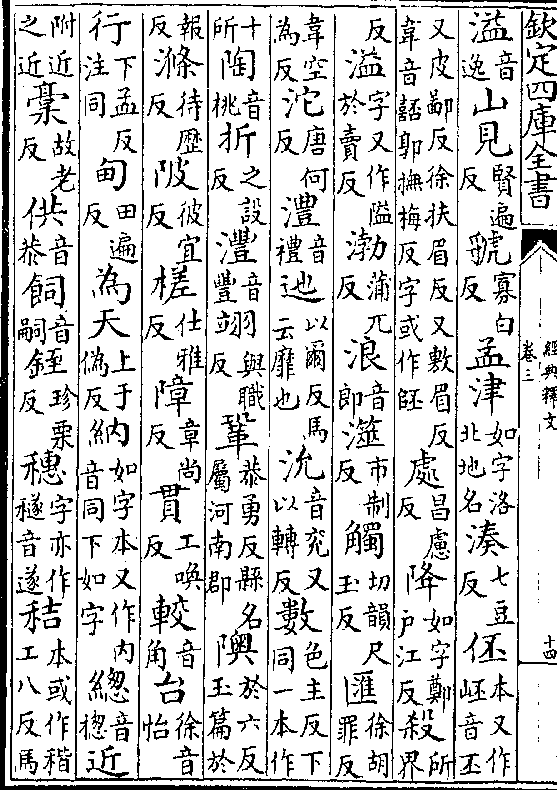 欽定四庫全書
經典釋文
卷三
十四
溢音逸山見賢遍反虢寡白反孟津如字洛北地名湊七豆反伾本又作岯音丕
又皮鄙反徐扶眉反又敷眉反韋音嚭郭撫梅反字或作處昌慮反降如字鄭戶江反殺所界
反溢字又作隘於賣反渤蒲兀反浪音郎澨市制反觸切韻尺玉反匯徐胡罪反
韋空為反沱唐何反澧音禮迆以爾反馬云靡也沇音兖又以轉反數色主反下同一本作
十所陶音桃折之設反灃音豐翊與職反鞏恭勇反縣名屬河南郡隩於六反玉篇於
報反滌待歷反陂彼宜反槎仕雅反障章尚反貫工喚反較音角台徐音怡
行下孟反注同甸田遍反為天上于偽反納如字本又作內音同下如字緫音揔近
附近之近槀故老反供音恭飼音嗣銍珍栗反穗字亦作穟音遂秸本或作稭工八反馬